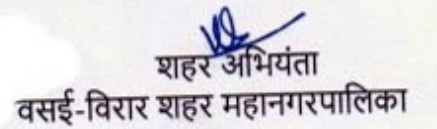 शहर अभियंता
वसई-विरार शहर महानगरपालिका